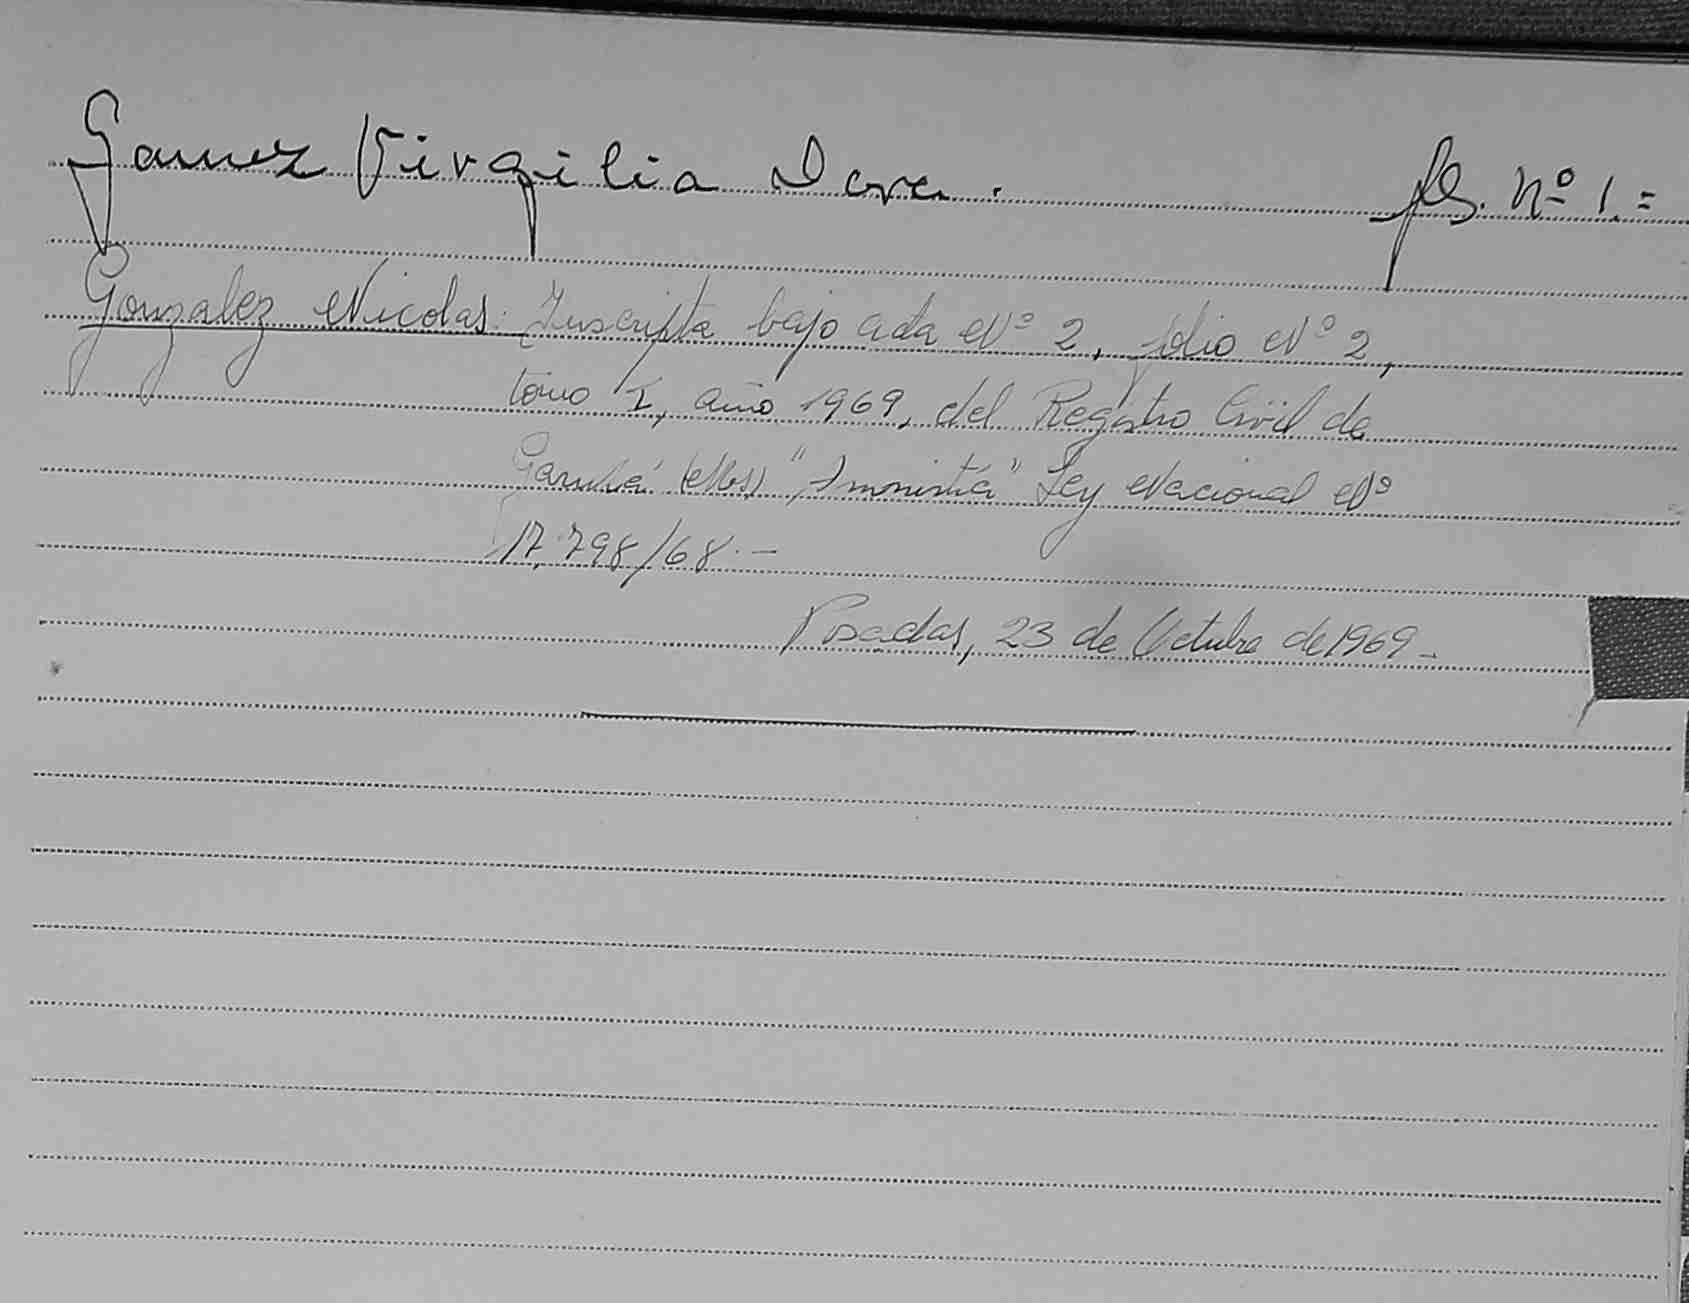 Gamez Virgilia Dora. fls. Nº 1.=
Gonzalez Nicolas: Inscripta bajo acta Nº 2, folio Nº 2,
tomo I, año 1969, del Registro Civil de
Garuhá (Ms) "Amnistía" Ley Nacional Nº
17.798/68.-
Posadas, 23 de Octubre de 1969-